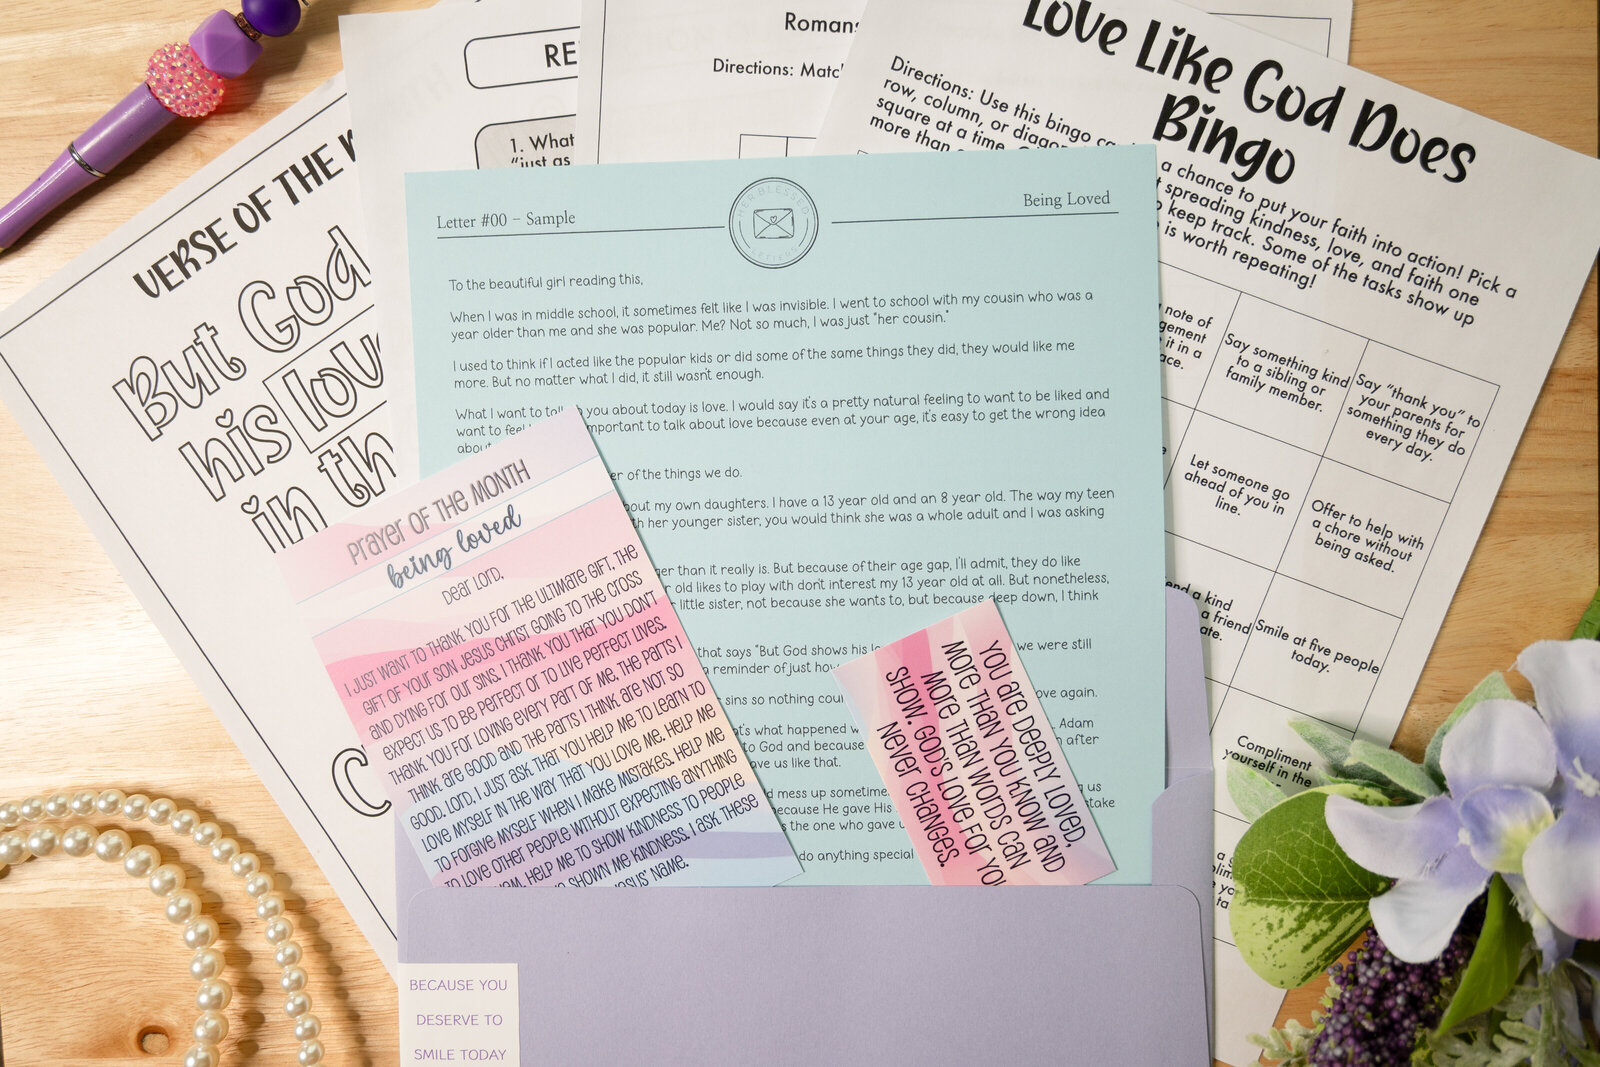 VERSE OF THE
But God
his
in th
C
RE
1. What
"just as
Romans
Directions: Matc
Love Like God Does
Bingo
Directions: Use this bingo
row, column, or
square at a time.
more than
a chance to put your faith into action! Pick a
spreading kindness, love, and faith one
keep track. Some of the tasks show up
is worth repeating!
note of
it in a
Say something kind
to a sibling or
family member.
Say "thank you" to
your parents for
something they do
every day.
Let someone go
ahead of you in
line.
Offer to help with
a chore without
being asked.
a kind
a friend
Smile at five people
today.
Compliment
yourself in the
Letter #00 – Sample
HER BLESSED
Being Loved
To the beautiful girl reading this,
When I was in middle school, it sometimes felt like I was invisible. I went to school with my cousin who was a
year older than me and she was popular. Me? Not so much, I was just "her cousin."
I used to think if I acted like the popular kids or did some of the same things they did, they would like me
more. But no matter what I did, it still wasn't enough.
What I want to you about today is love. I would say it's a pretty natural feeling to want to be liked and
want to feel important to talk about love because even at your age, it's easy to get the wrong idea
about
of the things we do.
my own daughters. I have a 13 year old and an 8 year old. The way my teen
her younger sister, you would think she was a whole adult and I was asking
than it really is. But because of their age gap, I'll admit, they do like
old likes to play with don't interest my 13 year old at all. But nonetheless,
little sister, not because she wants to, but because deep down, I think
that says "But God shows his we were still
a reminder of just how
sins so nothing again.
what happened Adam
to God and because after
us like that.
mess up us
because He gave His
the one who gave
do anything special
PRAYER OF THE MONTH
being loved
Dear Lord,
I JUST WANT TO THANK YOU FOR THE ULTIMATE GIFT, THE
GIFT OF YOUR SON JESUS CHRIST GOING TO THE CROSS
AND DYING FOR OUR SINS. I THANK YOU THAT YOU DON'T
EXPECT US TO BE PERFECT OR TO LIVE PERFECT LIVES.
THANK YOU FOR LOVING EVERY PART OF ME, THE PARTS I
THINK ARE GOOD AND THE PARTS I THINK ARE NOT SO
GOOD. LORD, I JUST ASK THAT YOU HELP ME TO LEARN TO
LOVE MYSELF IN THE WAY THAT YOU LOVE ME. HELP ME
TO FORGIVE MYSELF WHEN I MAKE MISTAKES. HELP ME
TO LOVE OTHER PEOPLE WITHOUT EXPECTING ANYTHING
HELP ME TO SHOW KINDNESS TO PEOPLE
SHOWN ME KINDNESS. I ASK THESE
NAME.
YOU ARE DEEPLY LOVED,
MORE THAN YOU KNOW AND
MORE THAN WORDS CAN
SHOW. GOD'S LOVE FOR
NEVER CHANGES.
BECAUSE YOU
DESERVE TO
SMILE TODAY